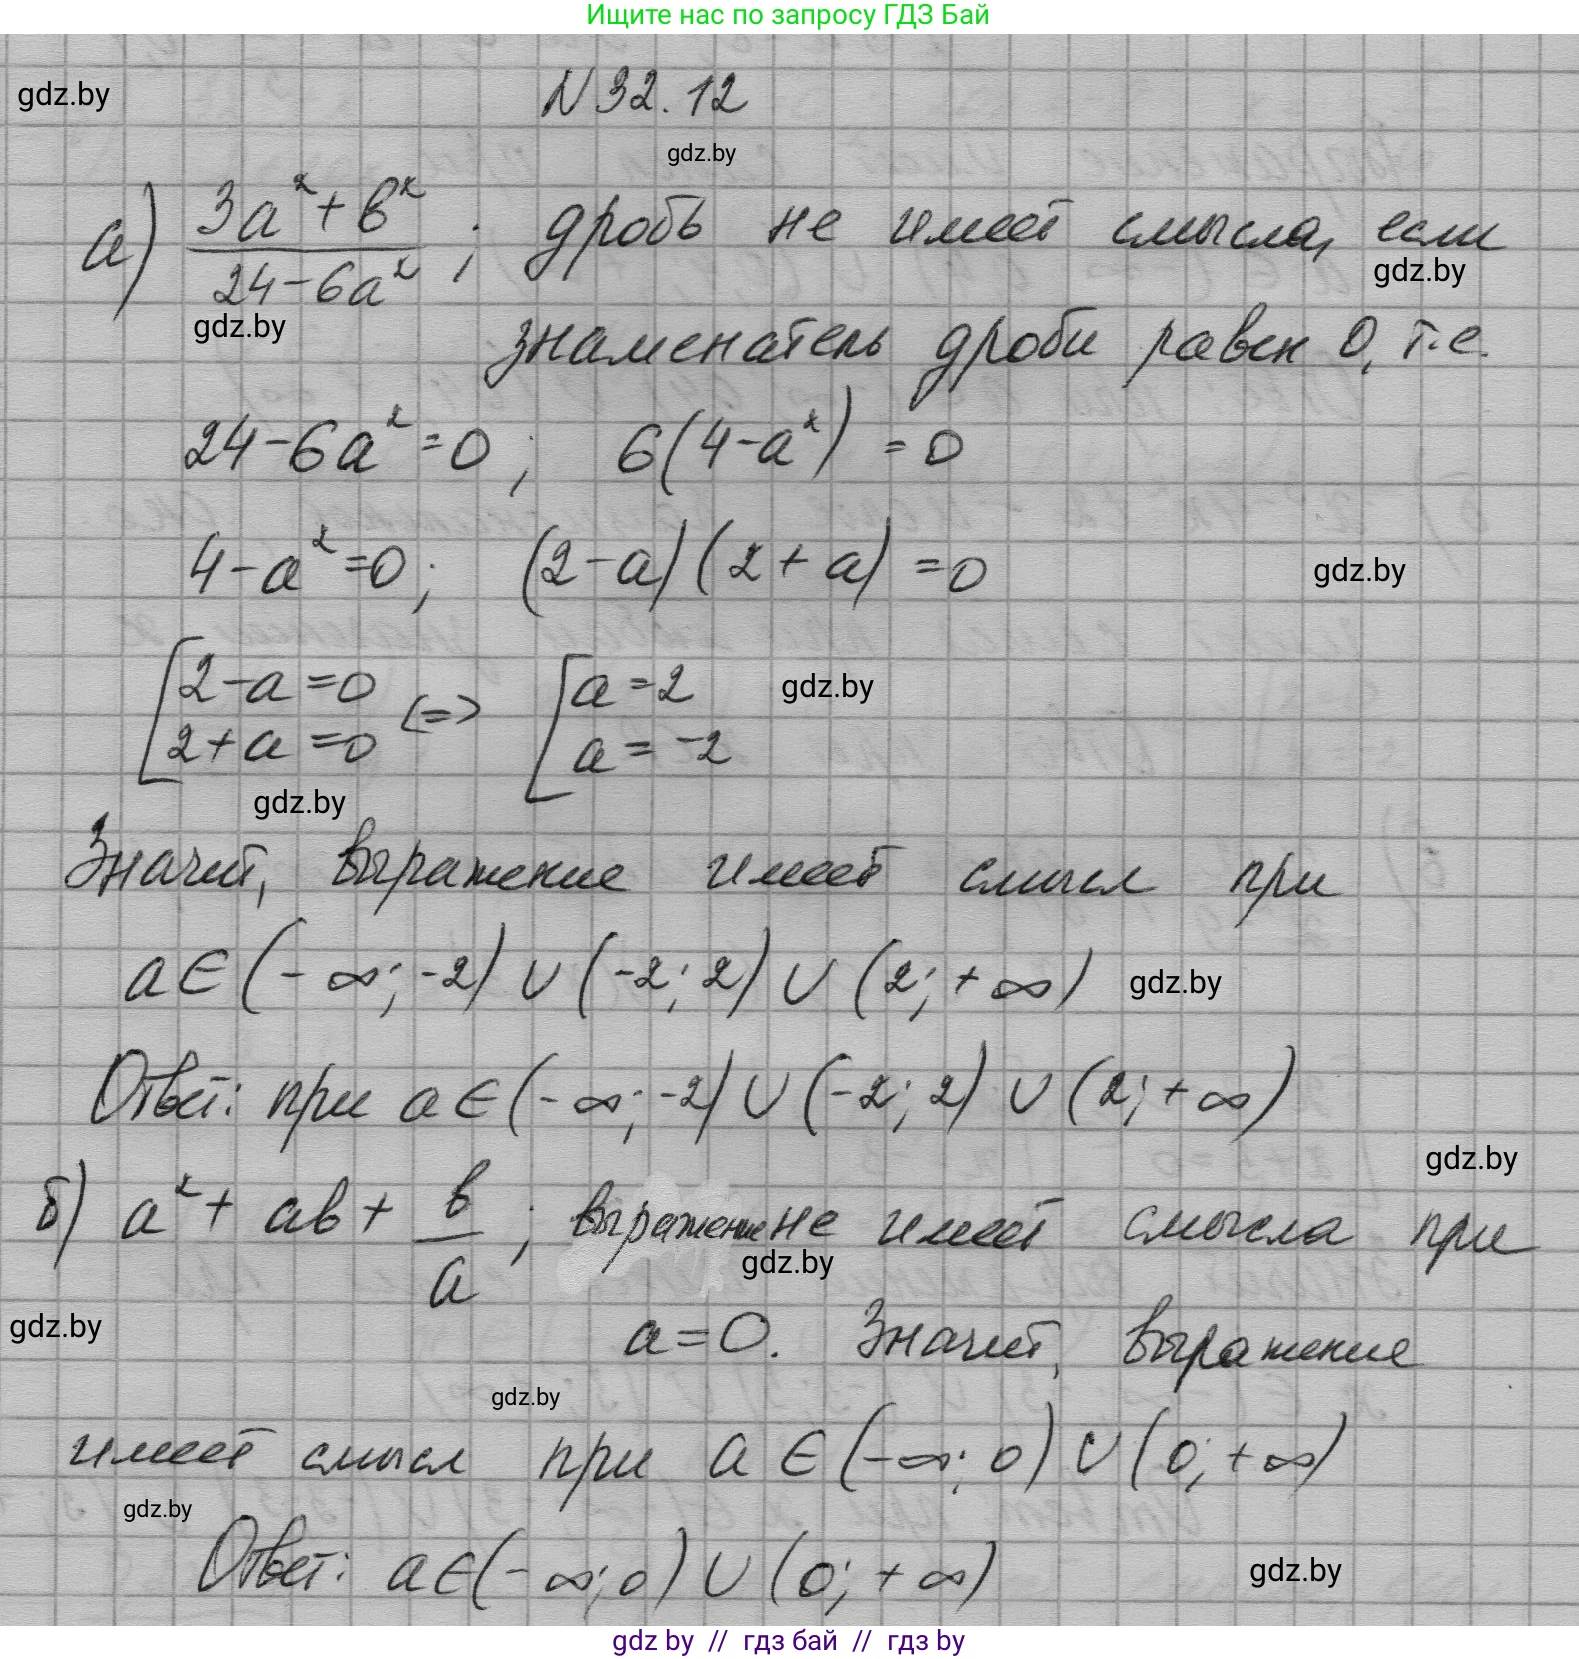 Ищите нас по запросу ГДЗ Бай
gdz.by
N 32.12
gdz.by
а) (3a² + b²)/(24 - 6a²); дробь не имеет смысла, если
gdz.by
gdz.by
знаменатель дроби равен 0, т.е.
24 - 6a² = 0; 6(4 - a²) = 0
4 - a² = 0; (2 - a)(2 + a) = 0
gdz.by
[2 - a = 0 [a = 2
<=>
gdz.by
2 + a = 0 a = -2
gdz.by
Значит, выражение имеет смысл при
a ∈ (-∞; -2) ∪ (-2; 2) ∪ (2; +∞)
gdz.by
Ответ: при a ∈ (-∞; -2) ∪ (-2; 2) ∪ (2; +∞)
gdz.by
б) a² + ab + b/a; выражение не имеет смысла при
gdz.by
gdz.by
a = 0. Значит, выражение
gdz.by
имеет смысл при a ∈ (-∞; 0) ∪ (0; +∞)
gdz.by
Ответ: a ∈ (-∞; 0) ∪ (0; +∞)
gdz.by
gdz by // гдз бай // гдз by